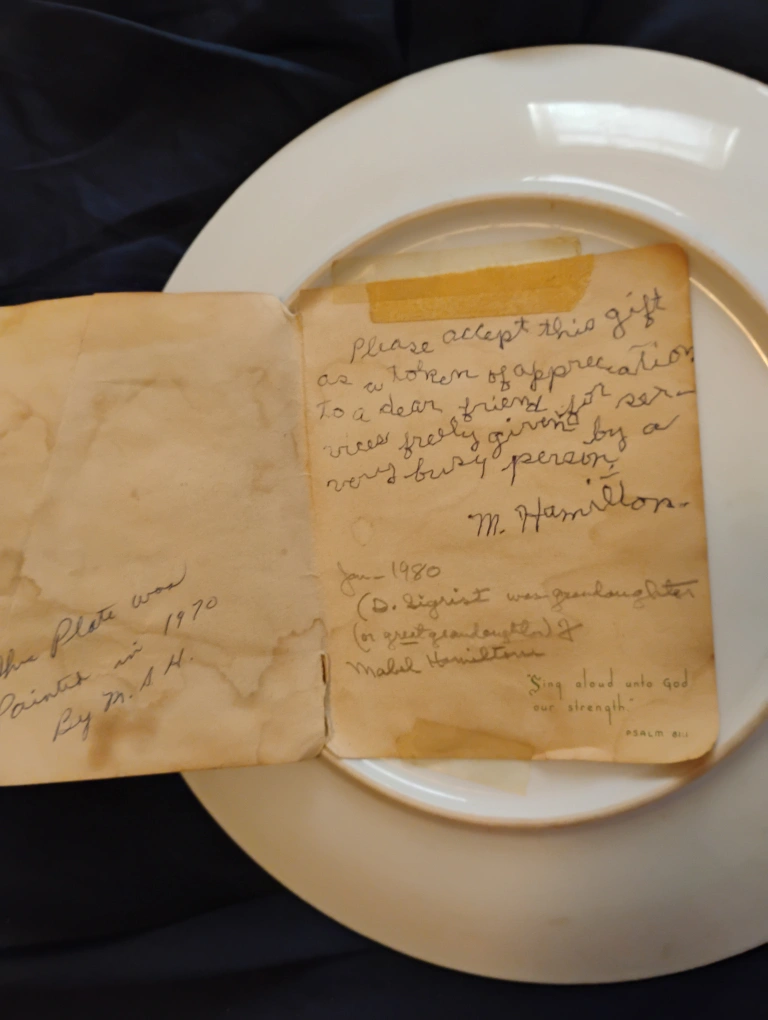 this Plate was
Painted in 1970
By M. S H.
Please accept this gift
as a token of appreciation
to a dear friend for ser-
vices freely given by a
very busy person.
M. Hamilton.
Jan - 1980
(D. Sigrist was grandaughter
(or great grandaughter) of
Mabel Hamilton
"Sing aloud unto God
our strength."
PSALM 81:1